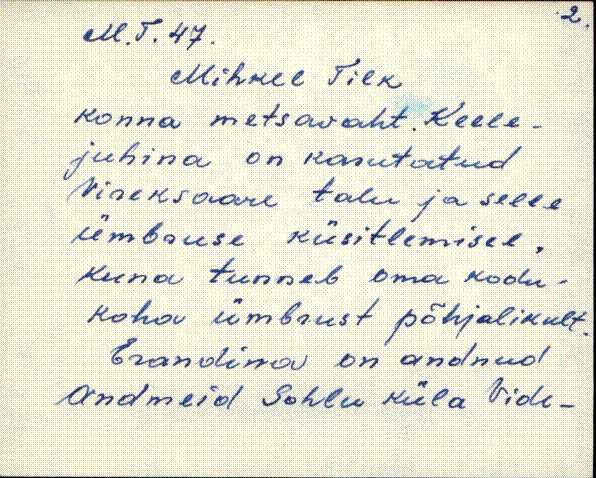 2.
M.T. 47.
Mihkel Tilk
konna metsavaht. Keele-
juhina on kasutatud
Vireksaare talu ja selle
ümbruse küsitlemisel,
kuna tunneb oma kodu-
koha ümbrust põhjalikult.
Erandina on andnud
andmeid Sohlu küla Vidi-